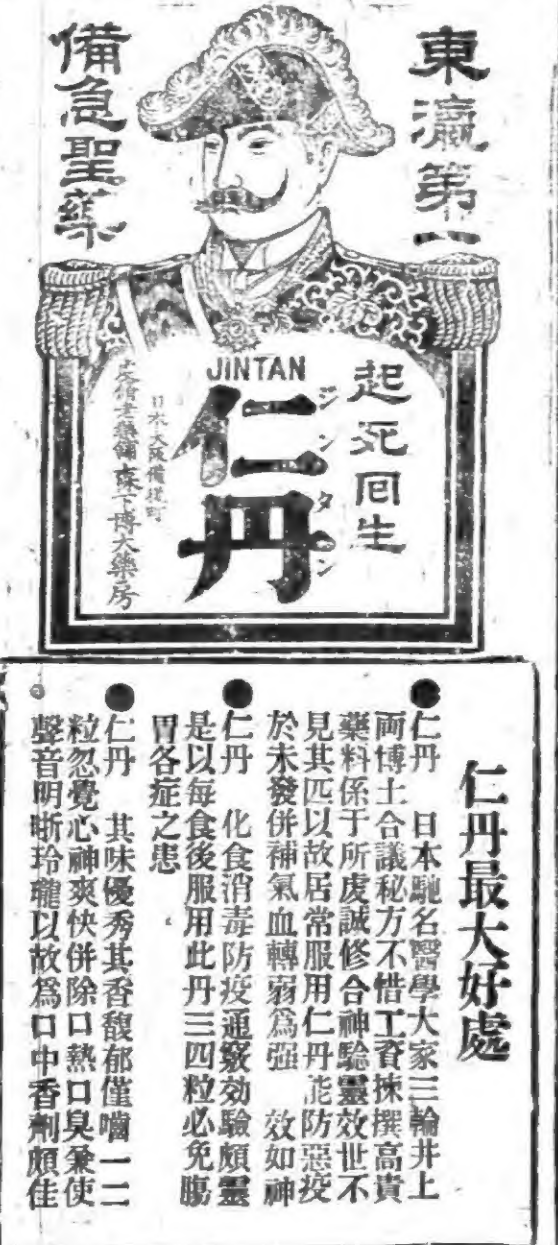 東瀛第一
備急聖藥
起死回生
JINTAN
仁丹
ジンタン
日本大阪備後町
老藥鋪森下博大藥房
仁丹最大好處
●仁丹　日本馳名醫學大家三輪井上
両博士合議秘方不惜工資揀撰高貴
藥料係于所虔誠修合神驗靈效世不
見其匹以故居常服用仁丹能防惡疫
於未發併補氣血轉弱爲强　效如神
●仁丹　化食消毒防疫通竅効驗頗靈
是以每食後服用此丹三四粒必免腸
胃各症之患
●仁丹　其味優秀其香馥郁僅嚼一二
粒忽覺心神爽快併除口熱口臭兼使
聲音明晰玲瓏以故爲口中香劑頗佳